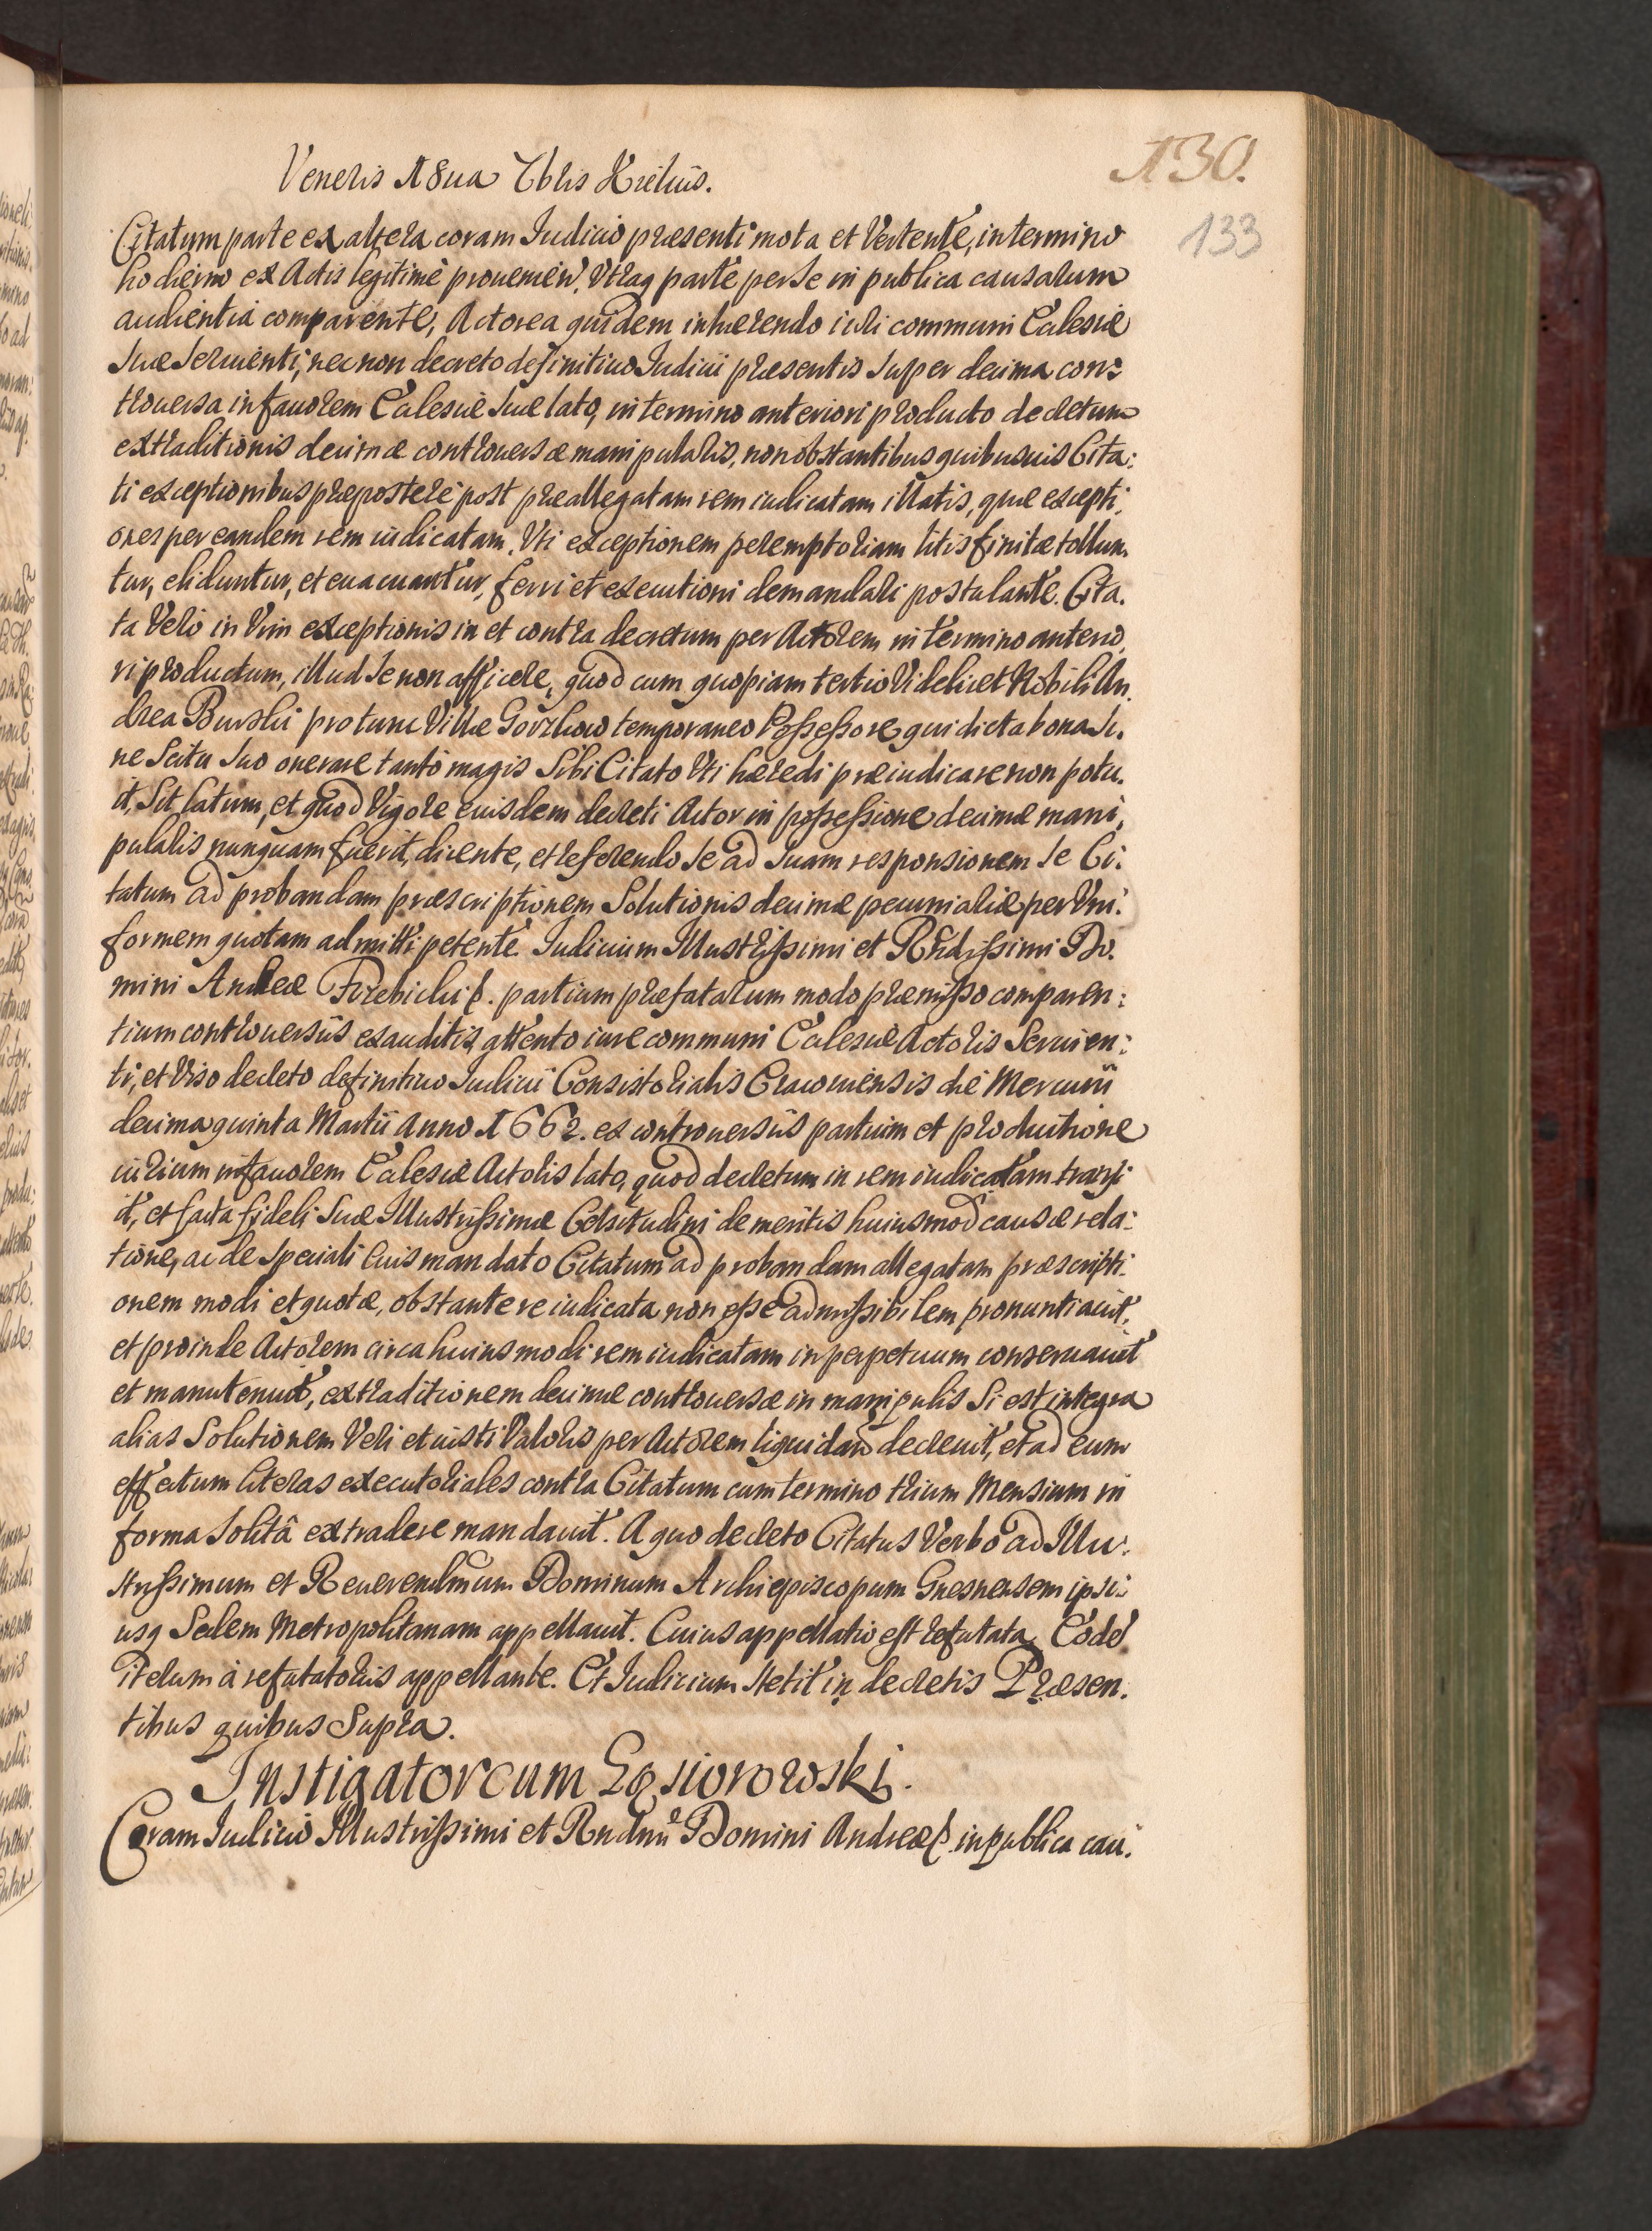 130.
Veneris 18ua 7bris Kielciis.
133
Citatum parte ex altera coram Iudicio præsenti mota et Vertente, in termino
hodierno ex Actis legitimè prouenien. Vtraq parte per se in publica causarum
audientia comparente, Actorea quidem inhærendo iuri communi Eclesiæ
suæ seruienti, nec non decreto definitiuo Iudicii præsentis super decima con:
trouersa in fauorem Eclesiæ suæ lato, in termino anteriori producto decretum
extraditionis decimæ controuersæ manipularis, non obstantibus quibusuis Cita:
ti exceptionibus præposterè post præallegatam rem iudicatam illatis, quæ excepti:
ones per eandem rem iudicatam, Vti exceptionem peremptoriam litis finitæ tollun
tur, eliduntur, et euacuantur, ferri et executioni demandari postulante. Cita.
ta Vero in Vim exceptionis in et contra decretum per Actorem in termino anterio,
ri productum, illud se non afficere, quod cum quopiam tertio Videlicet Nobili An
drea Burski protunc Villæ Gorzkow temporaneo Possessore qui dicta bona si.
ne scitu suo onerare tanto magis sibi Citato Vti hæredi præiudicare non potu.
it, sit latum, et quod Vigore eiusdem decreti Actor in possessione decimæ mani,
pularis nunquam fuerit, dicente, et referendo se ad suam responsionem se Ci:
tatum ad probandam præscriptionem Solutionis decimæ pecuniariæ per Vni:
formem quotam admitti petente. Iudicium Illustrissimi et Rndissimi Do.
mini Andreæ Trzebicki p. partium præfatarum modo præmisso comparen:
tium controuersiis exauditis, attento iure communi Eclesiæ Actoris Seruien:
ti, et Viso decreto definitiuo Iudicii Consistorialis Cracouiensis die Mercurii
decima quinta Martii Anno 1662. ex controuersiis partium et productione
iurium in fauorem Eclesiæ Actoris lato, quod decretum in rem iudicatam transi
it, et facta fideli suæ Illustrissimæ Celsitudini de meritis huiusmod causæ rela:
tione, ac de speciali Eius mandato Citatum ad probandam allegatam præscripti:
onem modi et quotæ, obstante re iudicata non esse admissibilem pronuntiauit,
et proinde Actorem circa huiusmodi rem iudicatam in perpetuum conseruauit
et manutenuit, extraditionem decimæ controuersæ in manipulis Si est integra
alias Solutionem Veri et iusti Valoris per Actorem liquidan decreuit, et ad eum
effectum literas executoriales contra Citatum cum termino trium Mensium in
forma solitâ extradere mandauit. A quo decreto Citatus Verbo ad Illu:
strissimum et Reuerendmum Dominum Archiepiscopum Gnesnensem ipsi:
usq Sedem Metropolitanam appellauit. Cuius appellatio est refutata, Eode
iterum à refutatoriis appellante. Et Iudicium stetit in decretis Præsen.
tibus quibus Supra.
Instigator cum Gąsiorowski.
Coram Iudicio Illustrissimi et Rndmi Domini Andreæ p. in publica cau: